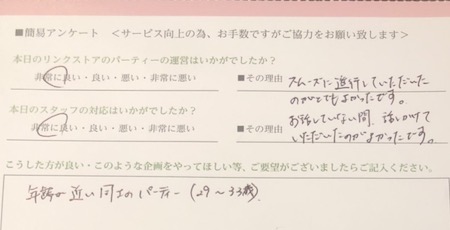 ■簡易アンケート ＜サービス向上の為、お手数ですがご協力をお願い致します＞
本日のリンクストアのパーティーの運営はいかがでしたか？
非常に良い・良い・悪い・非常に悪い
■その理由
スムーズに進行していただいた
のがとてもよかったです。
本日のスタッフの対応はいかがでしたか？
非常に良い・良い・悪い・非常に悪い
■その理由
お話していない間、話しかけて
いただいたのがよかったです。
こうした方が良い・このような企画をやってほしい等、ご要望がございましたらご記入ください。
年齢の近い同士のパーティー（29〜33歳）